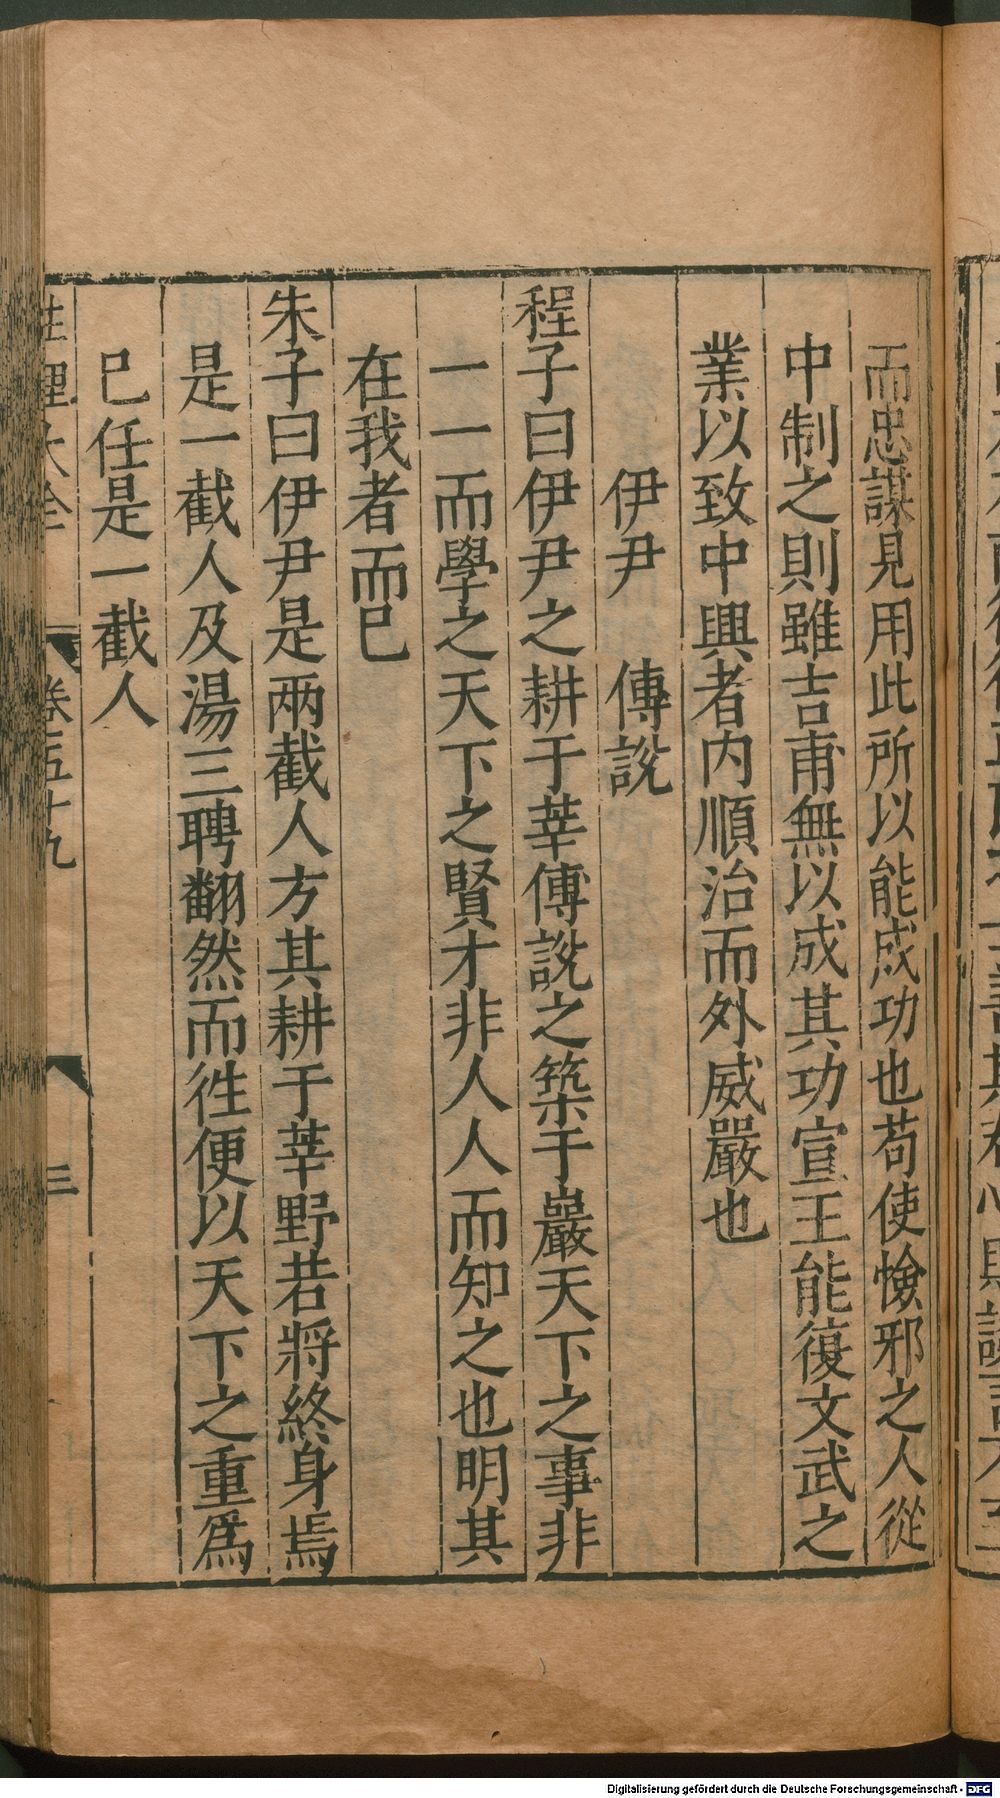 而忠謀見用此所以能成功也苟使憸邪之人從
中制之則雖吉甫無以成其功宣王能復文武之
業以致中興者内順治而外威嚴也
伊尹　傳說
程子曰伊尹之耕于莘傅說之築于巖天下之事非
一一而學之天下之賢才非人人而知之也明其
在我者而已
朱子曰伊尹是兩截人方其耕于莘野若將終身焉
是一截人及湯三聘翻然而徃便以天下之重爲
已任是一截人
性理大全　卷五十九　三
Digitalisierung gefördert durch die Deutsche Forschungsgemeinschaft - DFG